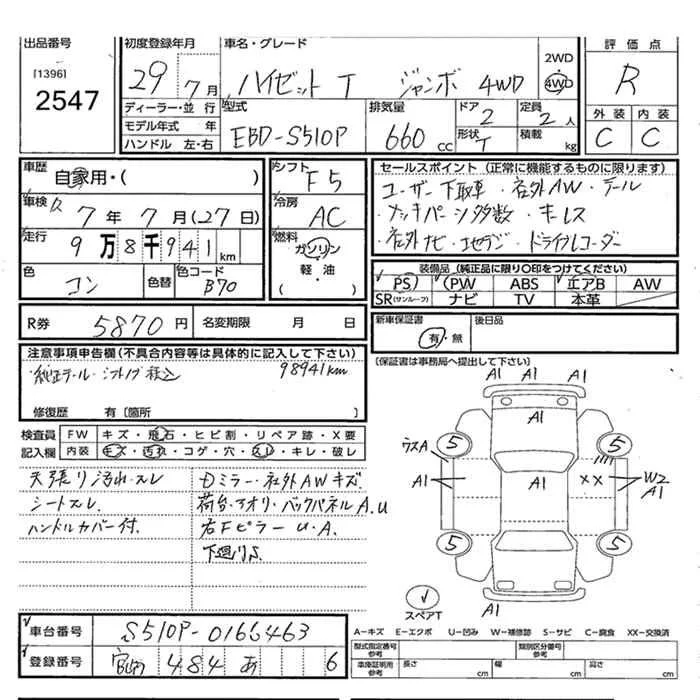 出品番号 初度登録年月 車名・グレード 評価点
[1396]
2547
29年 7月 ハイゼットT ジャンボ 4WD
2WD
4WD
R
ディーラー・並行
モデル年式 年
ハンドル 左・右
型式
EBD-S510P
排気量
660 cc
ドア 2
形状 T
定員 2人
積載 kg
外装 内装
C C
車歴 自家用・( )
シフト F5
車検 7年 7月 (27日)
冷房 AC
走行 9万8千941km
燃料 ガソリン
軽・油
( )
色 コン 色替 色コード B70
セールスポイント (正常に機能するものに限ります)
ユーザー下取車・社外AW・テール
・メッキパーツ多数・キーレス
・社外ナビ・エセテジ・ドライブレコーダー
装備品 (純正品に限り〇印をつけてください)
PS PW ABS エアB AW
SR(サンルーフ) ナビ TV 本革
R券 5870円 名変期限 月 日
新車保証書 有・無 後日品
[保証書は事務局へ提出して下さい]
注意事項申告欄 (不具合内容等は具体的に記入して下さい)
・純正テール・シフトノブ積込 98941km
修復歴 有 [箇所 ]
検査員 FW キズ・飛石・ヒビ割・リペア跡・X要
記入欄 内装 キズ・汚れ・コゲ・穴・スレ・キレ・破レ
天張り汚れ・スレ
シートスレ
ハンドルカバー付.
Dミラー・社外AWキズ.
荷台・アオリ・バックパネルA.U
右Fピラー U・A.
下廻りS.
A1 A1 A1
A1
ウスA 5 5
A1 A1 XX W2
A1
5 5
スペアT A1
車台番号 S510P-0166463
登録番号 484 あ 6
A−キズ E−エクボ U−凹み W−補修跡 S−サビ C−腐食 XX−交換済
型式指定番号
参考
類別区分番号
参考
車庫証明用
参考
長さ cm 幅 cm 高さ cm